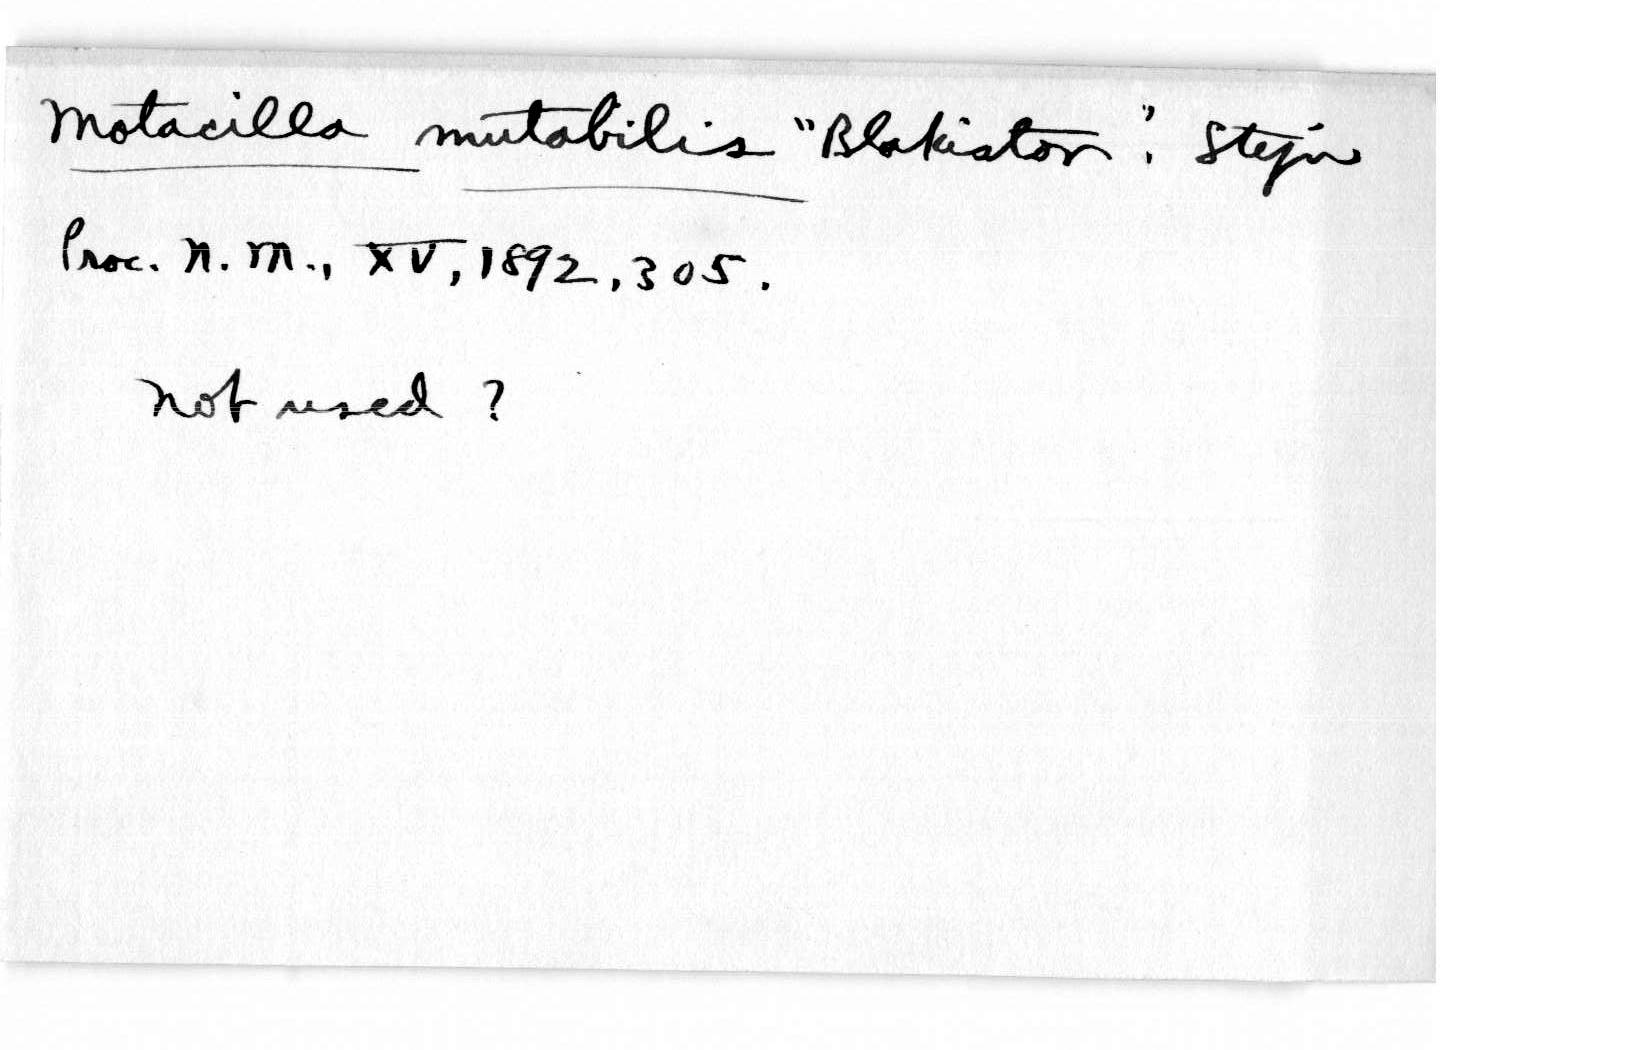 Motacilla mutabilis "Blakiston". Stejn
Proc. N. M., XV, 1892, 305.
Not used ?